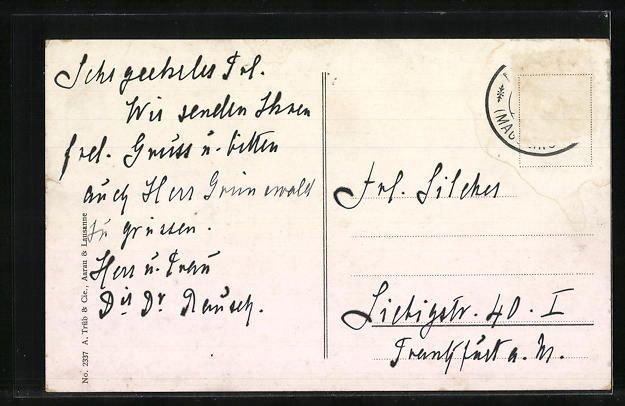 Sehr geehrtes Frl.
Wir senden Ihnen
frdl. Gruss u. bitten
auch Herr Grünewald
zu grüssen.
Herr u. Frau
Dir. Dr. Rausch.
Frl. Silcher
Liebigstr. 40. I
Frankfurt a. M.
No. 2337 A. Trüb & Cie., Aarau & Lausanne